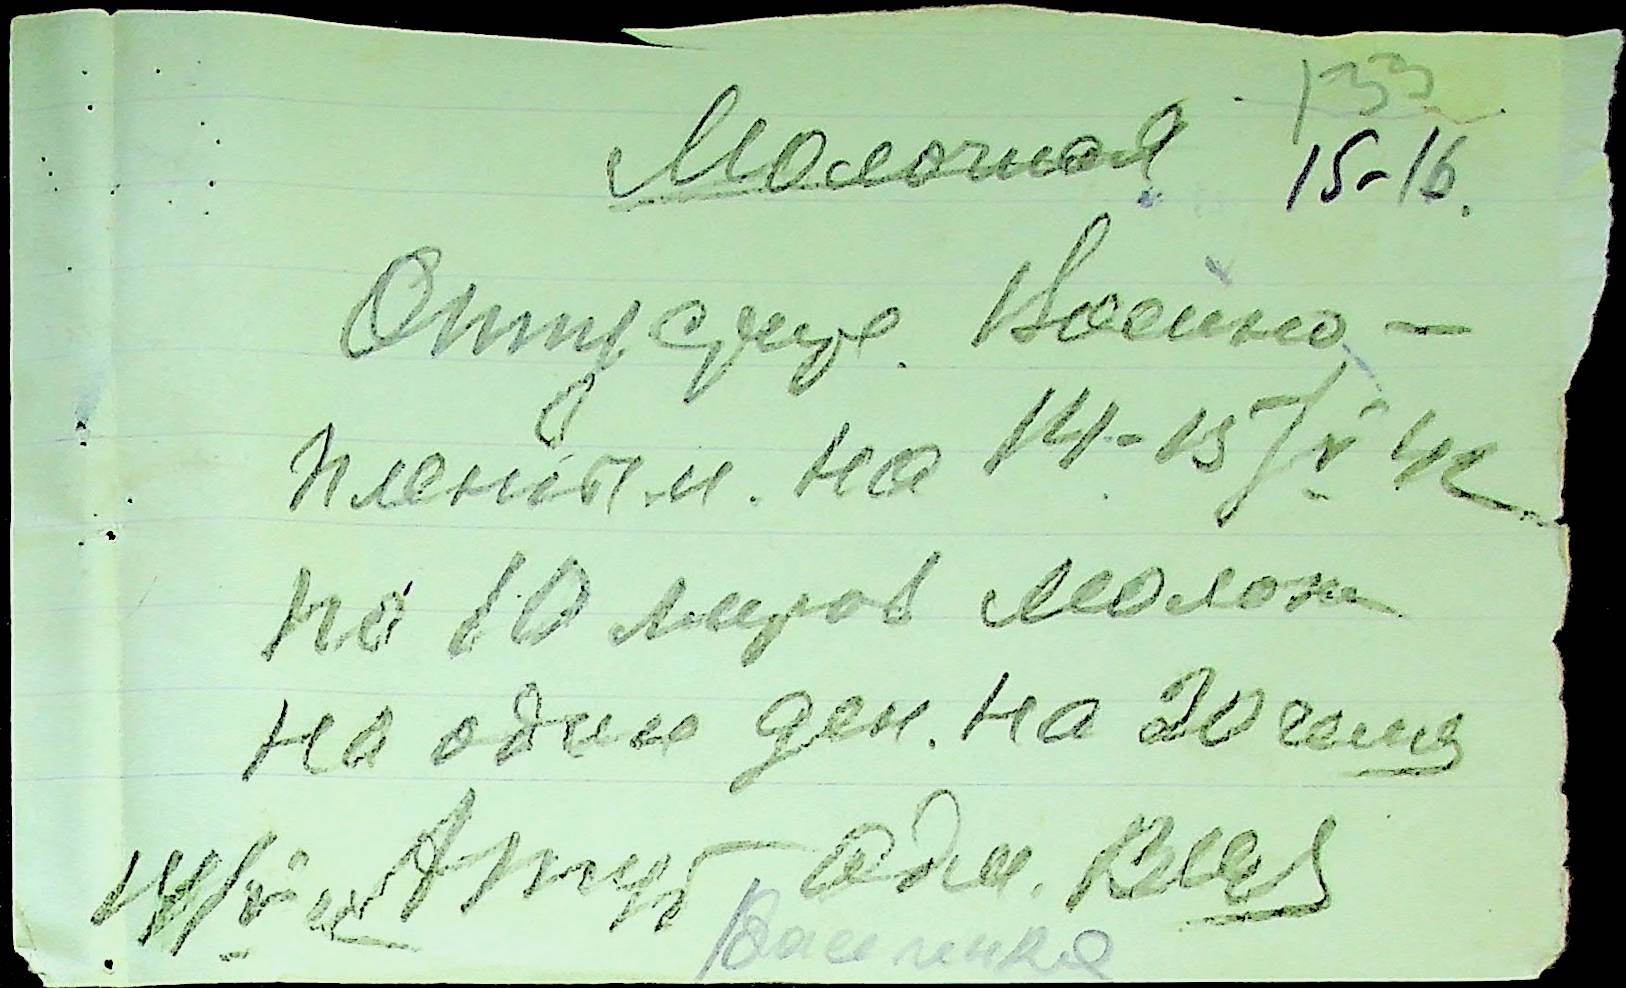 133
Молочная 15-16.
Отпусдите. Воейно-
пленым. на 14-15/V 42
по 10 литров молока
на один ден. на 20 чел
14/V 42 адм.
Василенка